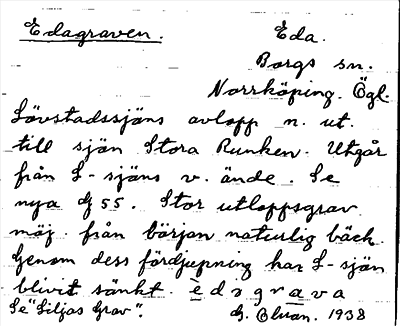 Edagraven. Eda.
Borgs sn.
Norrköping. Ögl.
Lövstadssjäns avlopp n. ut.
till sjön Stora Runken. Utgår
från L-sjäns v. ände. Se
nya Gj 55. Stor utloppsgrav
möj. från början naturlig bäck.
Genom dess fördjupning har L-sjön
blivit sänkt. edagrava
Se "Siljas Grav". 1938